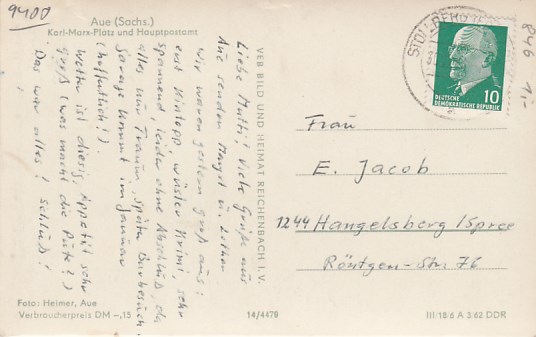 9400
Aue (Sachs.)
Karl-Marx-Platz und Hauptpostamt
Liebe Mutti! Viele Grüße aus
Aue senden Margot u. Lothar
Wir waren gestern groß aus:
erst Kintopp wüster Krimi, sehr
spannend, leider ohne Abschluß, da
alles nur Traum, später Barbesuch.
Garage kommt im Januar
(hoffentlich!).
Wetter ist diesig, Appetit sehr
groß (was macht die Pute?)
Das war alles! Schluß!
Foto: Heimer, Aue
Verbraucherpreis DM -,15
VEB BILD UND HEIMAT REICHENBACH I. V.
14/4478
STOLLBERG
DEUTSCHE
DEMOKRATISCHE REPUBLIK
10
846 1,-
Frau
E. Jacob
1244 Hangelsberg/Spree
Röntgen-Str. 76
III/18/6 A 3.62 DDR